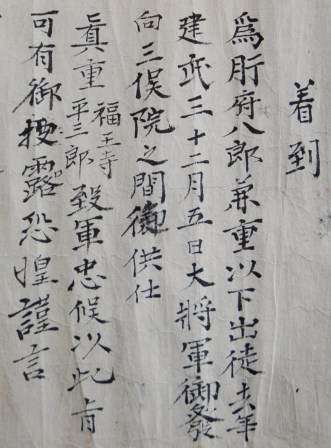 着到
為肝付八郎兼重以下凶徒去年
建武三十二月五日大将軍御發
向三俣院之間御供仕
真重福王寺平三郎致軍忠候以此旨
可有御披露恐惶謹言